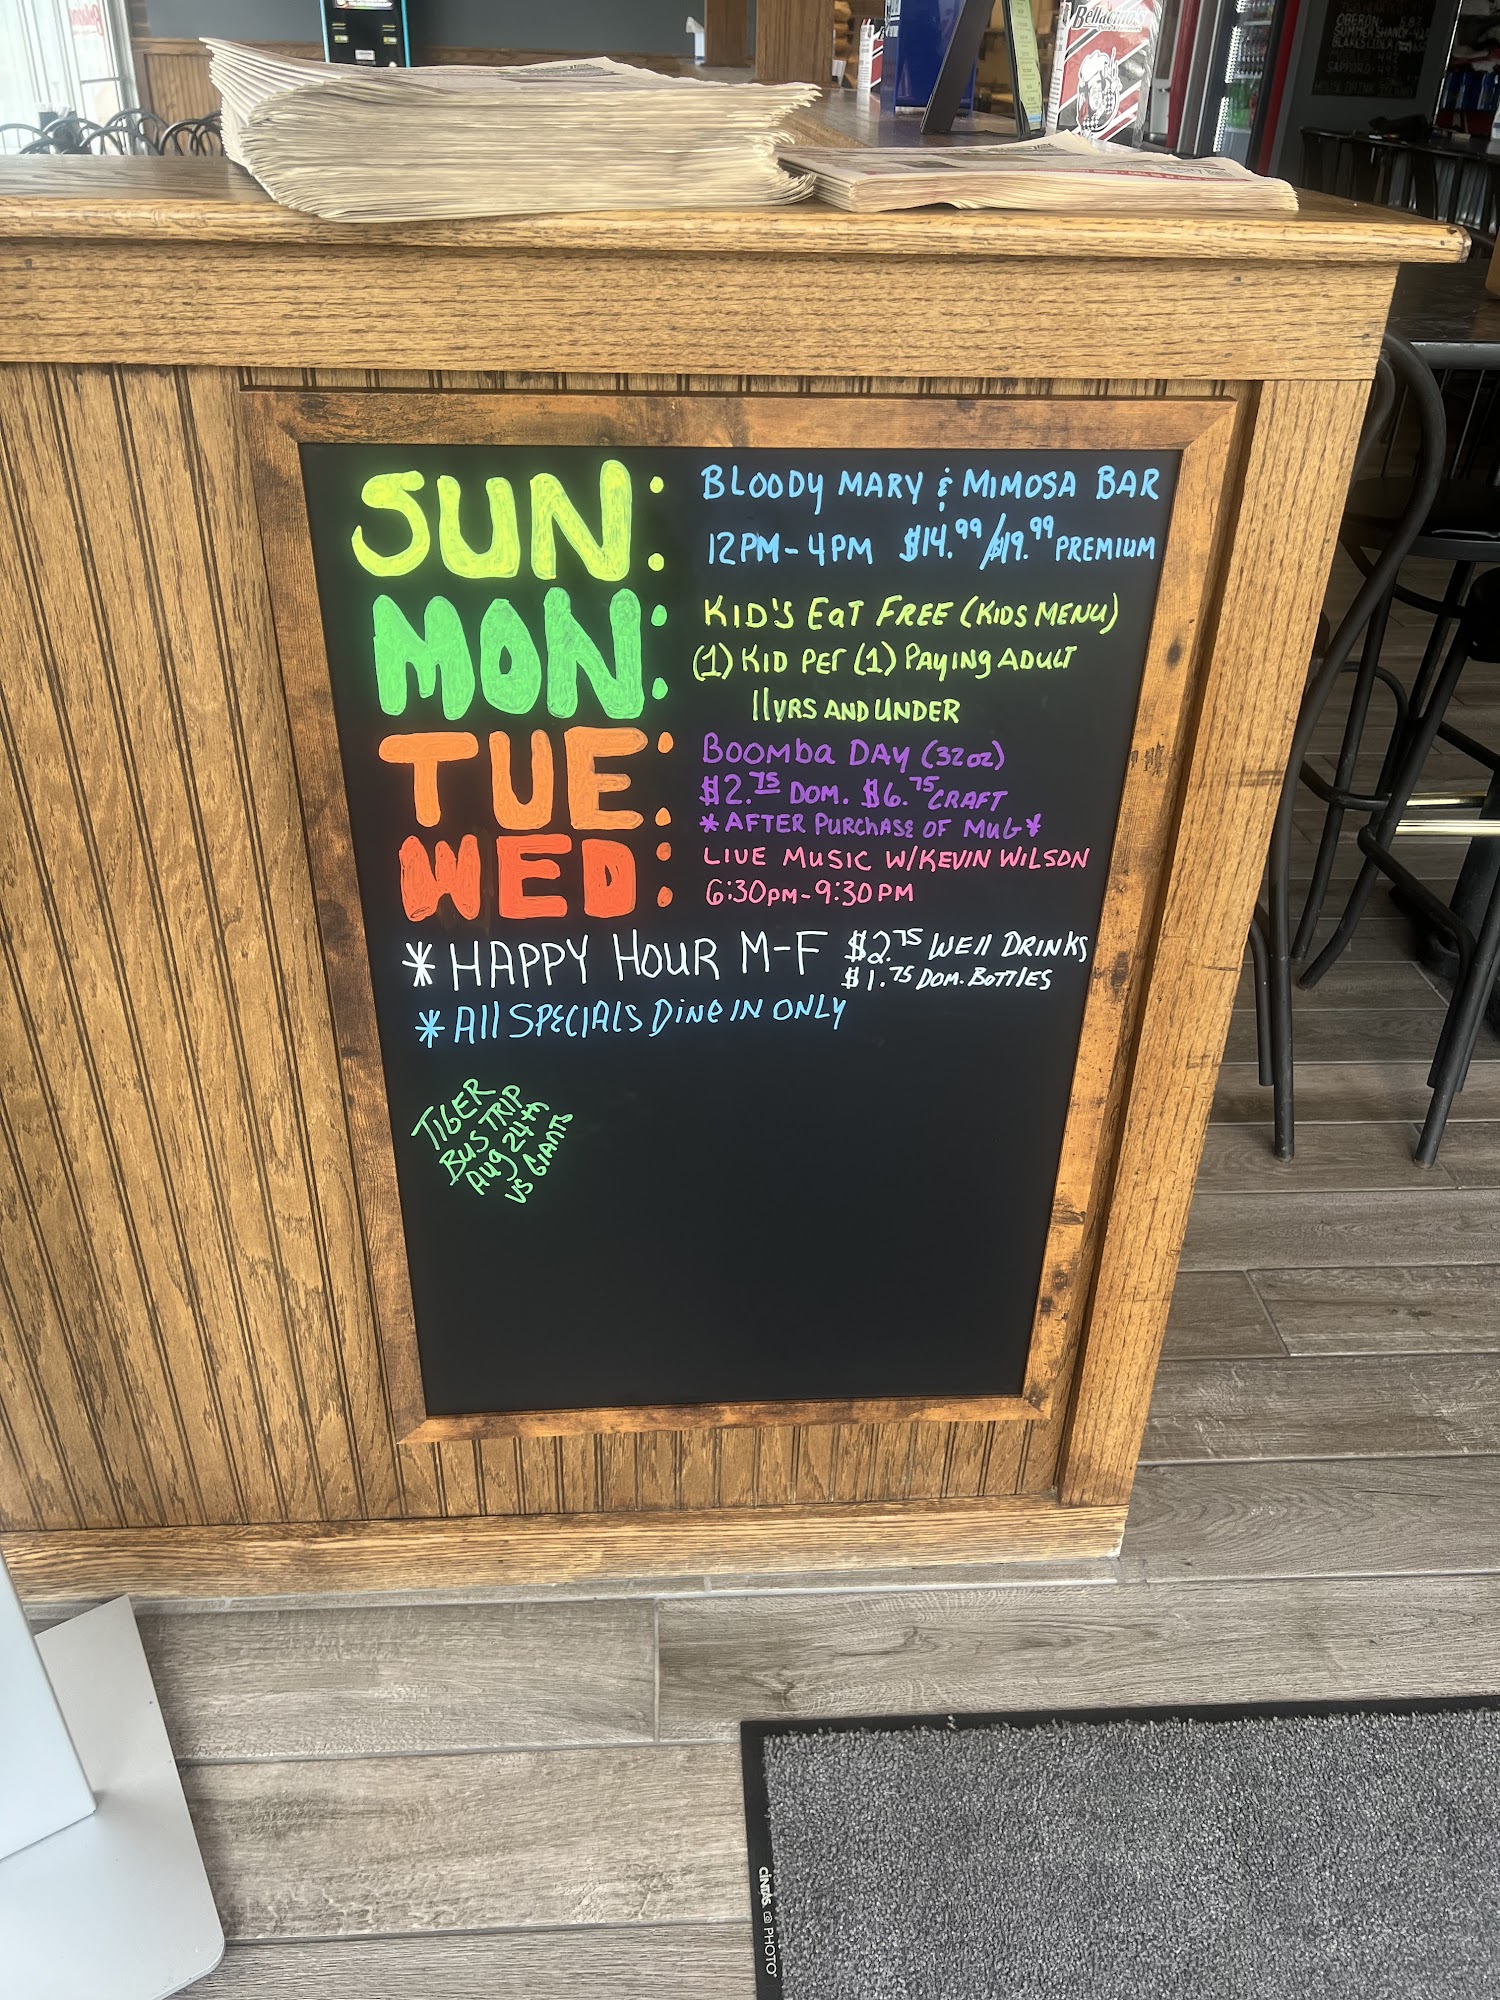 Bellacino's
OBERON
SUMMER SHANDY
SAPPORO
SUN: BLOODY MARY & MIMOSA BAR
12PM-4PM $14.99/$19.99 PREMIUM
MON: KID'S EAT FREE (KIDS MENU)
(1) KID PER (1) PAYING ADULT
11YRS AND UNDER
TUE: BOOMBA DAY (32oz)
$2.75 DOM. $6.75 CRAFT
*AFTER PURCHASE OF MUG*
WED: LIVE MUSIC W/KEVIN WILSON
6:30PM-9:30PM
*HAPPY HOUR M-F $2.75 WEll DRINKS
$1.75 DOM. BOTTLES
*All SPECIALS DINE IN ONLY
TIGER
BUS TRIP
Aug 24th
VS GIANTS
CINTAS. @ PHOTO